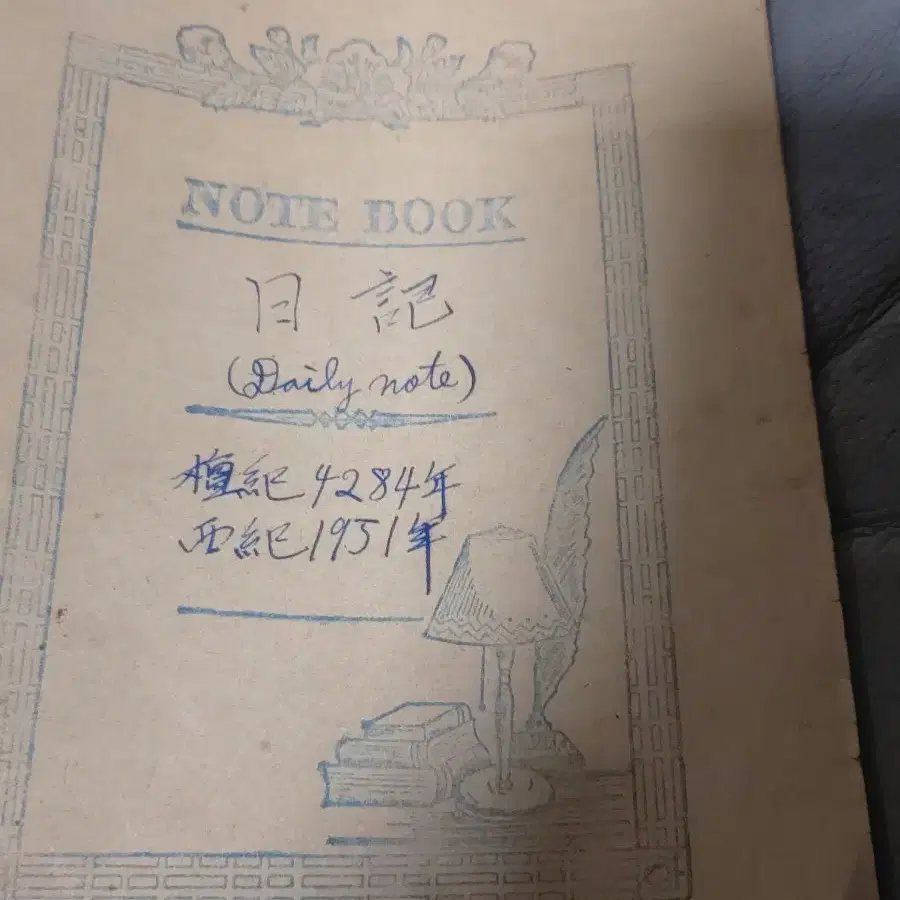 NOTE BOOK
日記
(Daily note)
檀紀4284年
西紀1951年